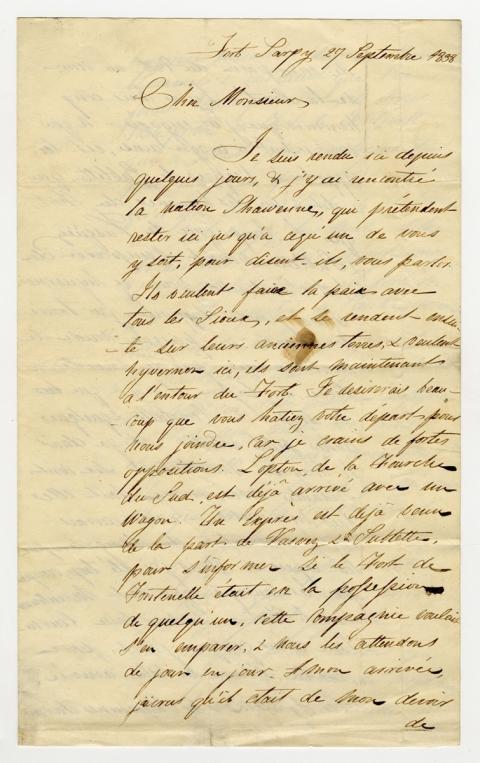 Fort Sarpy 27 Septembre 1838
Cher Monsieur
Je suis rendu ici depuis
quelques jours, & j'y ai rencontré
la nation Shawenne, qui pretendent
rester ici jusqu'a cequ'un de vous
y soit, pour disent-ils, vous parler.
Ils veulent faire la paix avec
tous les Sioux, et se rendent ensui-
te sur leurs anciennes terres, & veulent
hyverner ici, ils sont maintenant
a l'entour du Fort. Je desirerais beau-
coup que vous hatiez votre depart pour
nous joindre, car je crains de fortes
oppositions. Lopton, de la Fourche
du Sud, est déjà arrivé avec un
Wagon. Un Exprès est déjà venu
de la part de Vasquez & Sublette,
pour s'informer si le Fort de
Fontenelle était en la possession
de quelqu'un, cette Compagnie voulait
s'en emparer, & nous les attendons
de jour en jour. A mon arrivée,
j'ai cru qu'il était de mon devoir
de